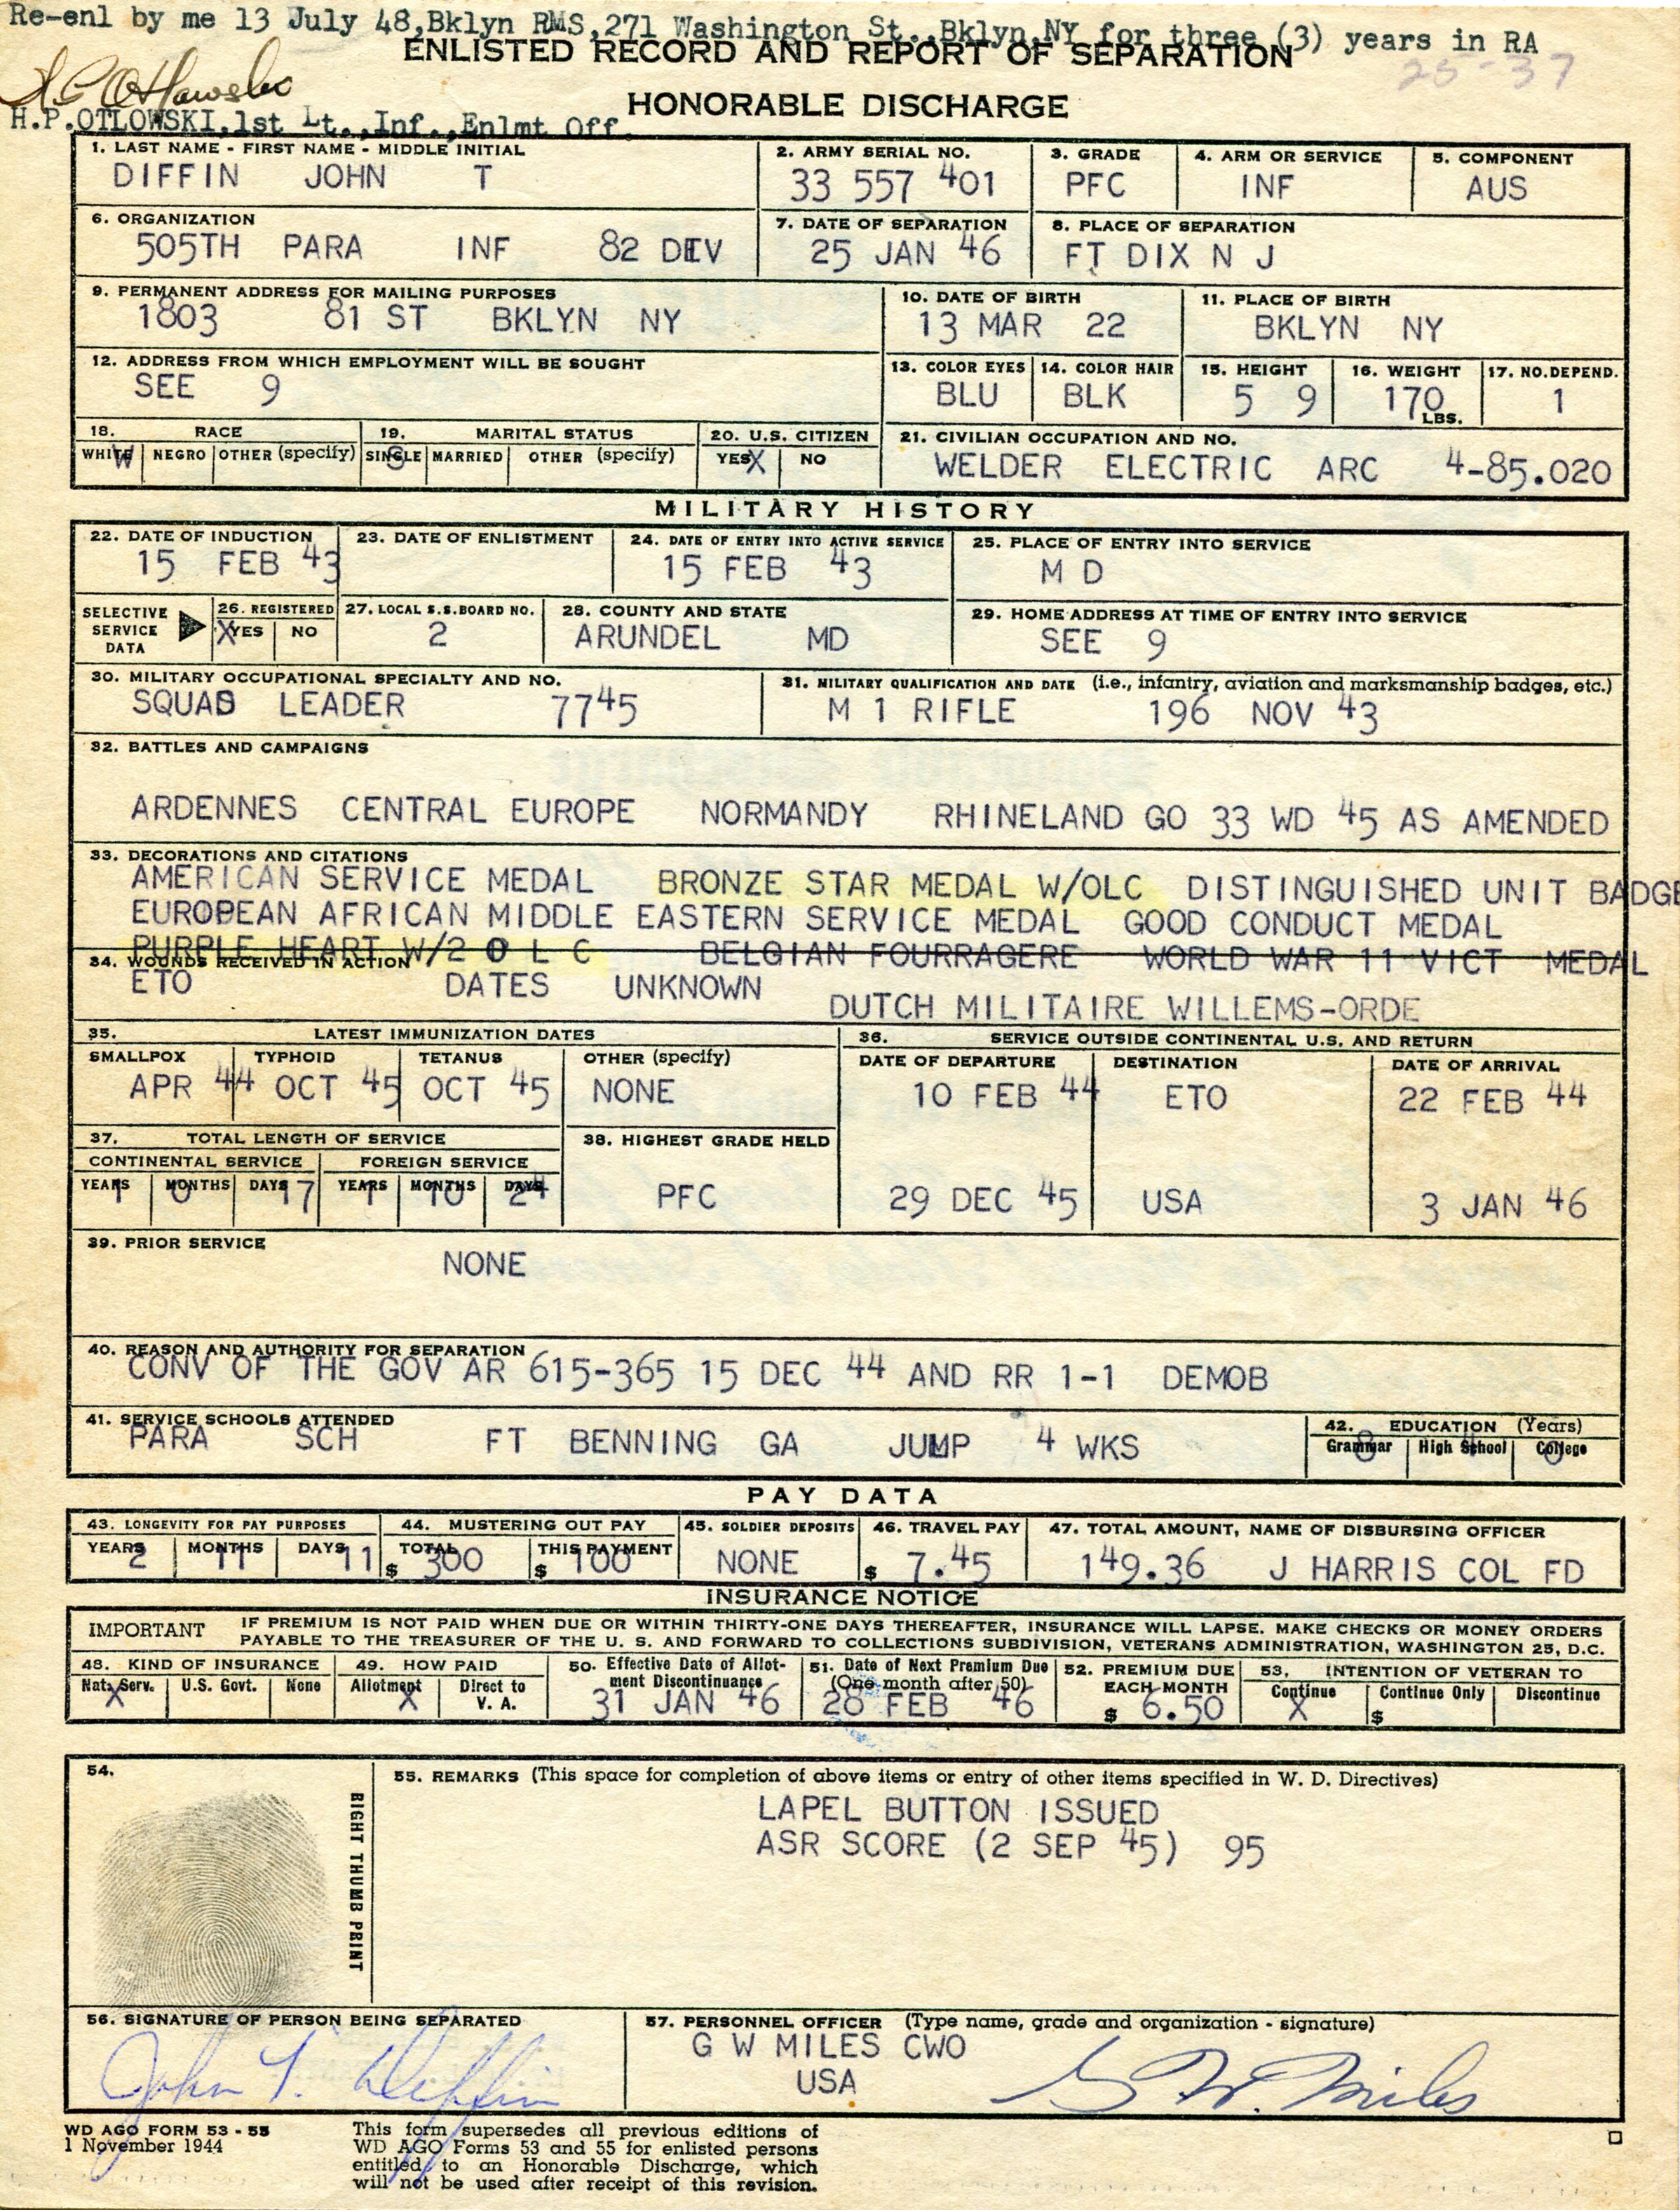 Re-enl by me 13 July 48,Bklyn RMS,271 Washington St.,Bklyn,NY for three (3) years in RA
ENLISTED RECORD AND REPORT OF SEPARATION
25-37
HONORABLE DISCHARGE
H.P.OTLOWSKI,1st Lt.,Inf.,Enlmt Off.
1. LAST NAME - FIRST NAME - MIDDLE INITIAL
DIFFIN JOHN T
2. ARMY SERIAL NO.
33 557 401
3. GRADE
PFC
4. ARM OR SERVICE
INF
5. COMPONENT
AUS
6. ORGANIZATION
505TH PARA INF 82 DIV
7. DATE OF SEPARATION
25 JAN 46
8. PLACE OF SEPARATION
FT DIX N J
9. PERMANENT ADDRESS FOR MAILING PURPOSES
1803 81 ST BKLYN NY
10. DATE OF BIRTH
13 MAR 22
11. PLACE OF BIRTH
BKLYN NY
12. ADDRESS FROM WHICH EMPLOYMENT WILL BE SOUGHT
SEE 9
13. COLOR EYES
BLU
14. COLOR HAIR
BLK
15. HEIGHT
5 9
16. WEIGHT
170 LBS.
17. NO.DEPEND.
1
18. RACE
WHITE W NEGRO OTHER (specify)
19. MARITAL STATUS
SINGLE S MARRIED OTHER (specify)
20. U.S. CITIZEN
YES X NO
21. CIVILIAN OCCUPATION AND NO.
WELDER ELECTRIC ARC 4-85.020
MILITARY HISTORY
22. DATE OF INDUCTION
15 FEB 43
23. DATE OF ENLISTMENT
24. DATE OF ENTRY INTO ACTIVE SERVICE
15 FEB 43
25. PLACE OF ENTRY INTO SERVICE
M D
SELECTIVE
SERVICE
DATA
26. REGISTERED
X YES NO
27. LOCAL S.S.BOARD NO.
2
28. COUNTY AND STATE
ARUNDEL MD
29. HOME ADDRESS AT TIME OF ENTRY INTO SERVICE
SEE 9
30. MILITARY OCCUPATIONAL SPECIALTY AND NO.
SQUAD LEADER 7745
31. MILITARY QUALIFICATION AND DATE (i.e., infantry, aviation and marksmanship badges, etc.)
M 1 RIFLE 196 NOV 43
32. BATTLES AND CAMPAIGNS
ARDENNES CENTRAL EUROPE NORMANDY RHINELAND GO 33 WD 45 AS AMENDED
33. DECORATIONS AND CITATIONS
AMERICAN SERVICE MEDAL BRONZE STAR MEDAL W/OLC DISTINGUISHED UNIT BADGE
EUROPEAN AFRICAN MIDDLE EASTERN SERVICE MEDAL GOOD CONDUCT MEDAL
PURPLE HEART W/2 O L C BELGIAN FOURRAGERE WORLD WAR 11 VICT MEDAL
34. WOUNDS RECEIVED IN ACTION
ETO DATES UNKNOWN
DUTCH MILITAIRE WILLEMS-ORDE
35. LATEST IMMUNIZATION DATES
SMALLPOX TYPHOID TETANUS OTHER (specify)
APR 44 OCT 45 OCT 45 NONE
36. SERVICE OUTSIDE CONTINENTAL U.S. AND RETURN
DATE OF DEPARTURE DESTINATION DATE OF ARRIVAL
10 FEB 44 ETO 22 FEB 44
29 DEC 45 USA 3 JAN 46
37. TOTAL LENGTH OF SERVICE
CONTINENTAL SERVICE FOREIGN SERVICE
YEARS MONTHS DAYS YEARS MONTHS DAYS
1 0 17 1 10 24
38. HIGHEST GRADE HELD
PFC
39. PRIOR SERVICE
NONE
40. REASON AND AUTHORITY FOR SEPARATION
CONV OF THE GOV AR 615-365 15 DEC 44 AND RR 1-1 DEMOB
41. SERVICE SCHOOLS ATTENDED
PARA SCH FT BENNING GA JUMP 4 WKS
42. EDUCATION (Years)
Grammar High School College
8 4 0
PAY DATA
43. LONGEVITY FOR PAY PURPOSES
YEARS MONTHS DAYS
2 11 11
44. MUSTERING OUT PAY
TOTAL THIS PAYMENT
$ 300 $ 100
45. SOLDIER DEPOSITS
NONE
46. TRAVEL PAY
$ 7.45
47. TOTAL AMOUNT, NAME OF DISBURSING OFFICER
149.36 J HARRIS COL FD
INSURANCE NOTICE
IMPORTANT
IF PREMIUM IS NOT PAID WHEN DUE OR WITHIN THIRTY-ONE DAYS THEREAFTER, INSURANCE WILL LAPSE. MAKE CHECKS OR MONEY ORDERS
PAYABLE TO THE TREASURER OF THE U. S. AND FORWARD TO COLLECTIONS SUBDIVISION, VETERANS ADMINISTRATION, WASHINGTON 25, D.C.
48. KIND OF INSURANCE
Nat. Serv. U.S. Govt. None
X
49. HOW PAID
Allotment Direct to
V. A.
X
50. Effective Date of Allot-
ment Discontinuance
31 JAN 46
51. Date of Next Premium Due
(One month after 50)
28 FEB 46
52. PREMIUM DUE
EACH MONTH
$ 6.50
53. INTENTION OF VETERAN TO
Continue Continue Only Discontinue
X $
54.
RIGHT THUMB PRINT
55. REMARKS (This space for completion of above items or entry of other items specified in W. D. Directives)
LAPEL BUTTON ISSUED
ASR SCORE (2 SEP 45) 95
56. SIGNATURE OF PERSON BEING SEPARATED
John T. Diffin
57. PERSONNEL OFFICER (Type name, grade and organization - signature)
G W MILES CWO
USA
G W. Miles
WD AGO FORM 53 - 55
1 November 1944
This form supersedes all previous editions of
WD AGO Forms 53 and 55 for enlisted persons
entitled to an Honorable Discharge, which
will not be used after receipt of this revision.